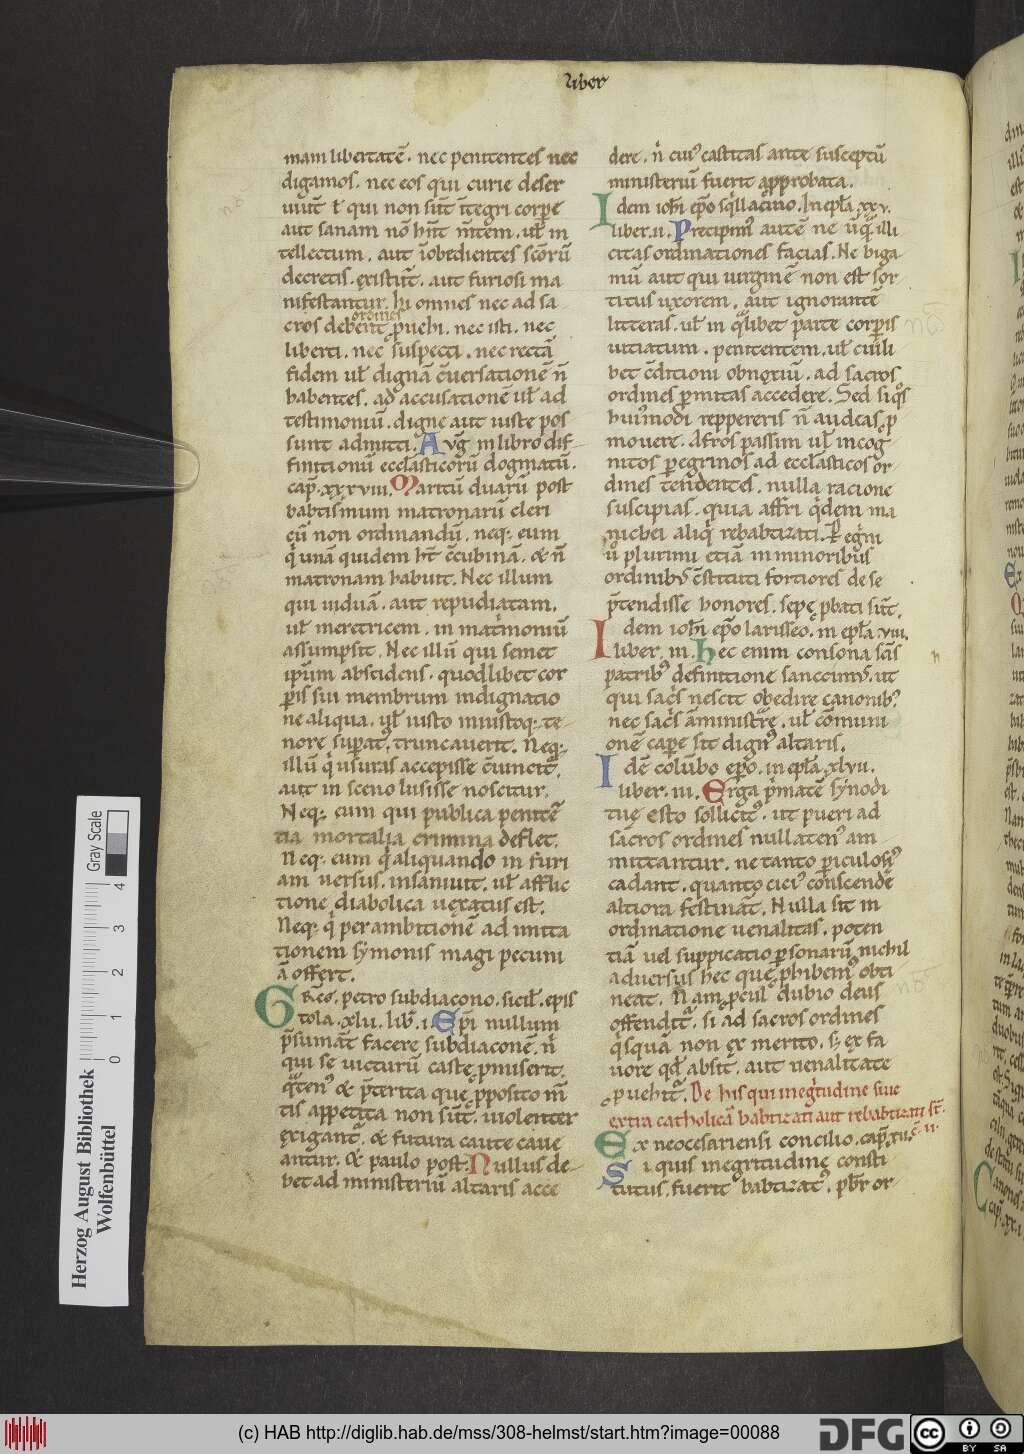 Liber
mam libertatē. nec penitentes nec
digamos. nec eos qui curie deser
uiūt ł qui non sūt ītegri corpore
aut sanam nō hn̄t mēntem. uł in
tellectum. aut īobedientes scōrū
decretis. existūt. aut furiosi ma
nifestantur. hi omnes nec ad sa
ordines
cros debent ꝓuehi. nec isti. nec
liberti. nec suspecti. nec rectā
fidem uł dignā c̄uersationē n̄
habentes. ad accusationē uł ad
testimoniū. digne aut iuste pos
sunt admitti. Avḡ in libro dif-
finitionū ecclesiasticorū dogmatū.
cap̄. xxxviii. Maritū duarū post
babtismum matronarū cleri
cū non ordinandū. neq; eum
qͥ unā quidem hr̄t c̄cubinā. & n̄
matronam habuit. Nec illum
qui uiduā. aut repudiatam.
uł meretricem. in matͥmoniū
assumpsit. Nec illū qui semet
ip̄um abscidens. quodlibet cor
ꝑis sui membrum indignatio
ne aliqua. uł iusto iniustoq; te-
nore suꝑat'. truncauerit. Neq;
illū qͥ usuras accepisse c̄uincit'.
aut in sceno lusisse noscitur.
Neq; cum qui publica penitē
tia mortalia crimina deflet.
Neq; eum qͥ aliquando in furi
am uersus. insaniuit. uł afflic
tione diabolica uexatus est.
Neq; qͥ per ambitionē ad imita
tionem symonis magi pecuni
ā offert.
Greḡ. petro subdiacono. sicił. epis
tola. xlii. lib̄. i. Ep̄i nullum
p̄sumāt facere subdiaconē. nͥ
qui se uicturū caste ꝓmiserit.
qͣten' & p̄terita que ꝓposito m̄
tis appetita non sūt. uiolenter
exigant'. & futura caute caue
antur. & paulo post. Nullus de-
bet ad ministeriū altaris acce
dere. nͥ cui' castitas ante susceptū
ministeriū fuerit approbata.
Idem ioħi ep̄o sqͥllacino. In epl̄a xxv.
liber. ii. Precipim' autē ne ūqͣ illi
citas ordinationes facias. Ne biga
mū aut qui uirginē non est sor
titus uxorem. aut ignorantē
litteras. uł in qͣlibet parte corꝑis
uitiatum. penitentem. uł cuili
bet c̄ditioni obnoxiū. ad sacros
ordines ꝑmitas accedere. Sed siqͦs
hui'modi reppereris n̄ audeas ꝓ
mouere. Afros passim uł incog
nitos ꝑegrinos ad ecclesiasticos or-
dines tendentes. nulla racione
suscipias. quia affri qͥdem ma
nichei aliqͥ rebabtizati. Peregͥni
ū plurimi etiā in minoribus
ordinib' c̄stituti fortiores de se
p̄tendisse honores. sepe ꝓbati sūt.
Idem ioħi ep̄o larisseo. in epl̄a. viii.
liber. iii. Hec enim consona sc̄is
patrib' definitione sanccim'. ut
qui sacͥs nescit obedire canonib'.
nec sacͥs āministrͣe. uł cōmuni
onē caꝑe sit dign' altaris.
Idē colūbo ep̄o. in epl̄a. xlvii.
liber. iii. Erga pͥmatē synodi
tue esto sollicit'. ut pueri ad
sacros ordines nullaten' am
mittantur. ne tanto ꝑiculosi'
cadant. quanto cici' conscendē
altiora festināt. Nulla sit in
ordinatione uenalitas. poten
tiā uel suppicatio ꝑsonarū nichil
aduersus hec que ꝓhibem' obti
neat. Nam ꝓcul dubio deus
offendit'. si ad sacros ordines
qͥsquā non ex merito. s; ex fa
uore qđ absit. aut uenalitate
ꝓuehit'. De his qui in egͥtudine siue
extra catholicā babtizati aut rebabtizati st̄. c̄. ii.
Ex neocesariensi concilio. cap̄. xii.
Si quis in egritudine consti-
tutus. fuerit babtizat'. pb̄r or-
Herzog August Bibliothek
Wolfenbüttel
Gray Scale
0 1 2 3 4
(c) HAB http://diglib.hab.de/mss/308-helmst/start.htm?image=00088
DFG
cc
BY SA